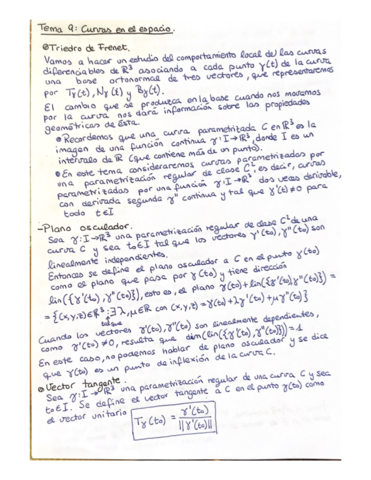 Tema 9: Curvas en el espacio.
⊙Triedro de Frenet.
Vamos a hacer un estudio del comportamiento local de las curvas
diferenciables de ℝ³ asociando a cada punto γ(t) de la curva
una base ortonormal de tres vectores, que representaremos
por Tγ(t), Nγ(t) y Bγ(t).
El cambio que se produzca en la base cuando nos movamos
por la curva nos dará información sobre las propiedades
geométricas de ésta.
⊙Recordemos que una curva parametrizada C en ℝ³ es la
imagen de una función continua γ:I→ℝ³, donde I es un
intervalo de ℝ (que contiene más de un punto).
⊙En este tema consideraremos curvas parametrizadas por
una parametrización regular de clase C², es decir, curvas
parametrizadas por una función γ:I→ℝ³ dos veces derivable,
con derivada segunda γ'' continua y tal que γ'(t)≠0 para
todo t∈I
-Plano osculador.
Sea γ:I→ℝ³ una parametrización regular de clase C² de una
curva C y sea t₀∈I tal que los vectores γ'(t₀), γ''(t₀) son
linealmente independientes.
Entonces se define el plano osculador a C en el punto γ(t₀)
como el plano que pasa por γ(t₀) y tiene dirección
lin({γ'(t₀), γ''(t₀)}), esto es, el plano γ(t₀)+lin({γ'(t₀), γ''(t₀)}) =
= {(x,y,z)∈ℝ³: ∃ λ,μ∈ℝ con (x,y,z)=γ(t₀)+λγ'(t₀)+μγ''(t₀)}
Cuando los vectores γ'(t₀), γ''(t₀) son linealmente dependientes,
como γ'(t₀)≠0, resulta que dim(lin({γ'(t₀), γ''(t₀)}))=1
En este caso, no podemos hablar de plano osculador y se dice
que γ(t₀) es un punto de inflexión de la curva C.
⊙Vector tangente.
Sea γ:I→ℝ³ una parametrización regular de una curva C y sea
t₀∈I. Se define el vector tangente a C en el punto γ(t₀) como
el vector unitario Tγ(t₀) = γ'(t₀) / ||γ'(t₀)||